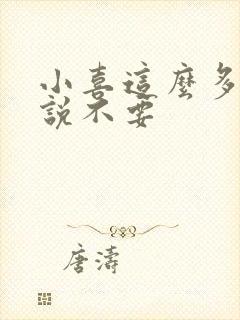 小喜這麼多
說不要
唐濤